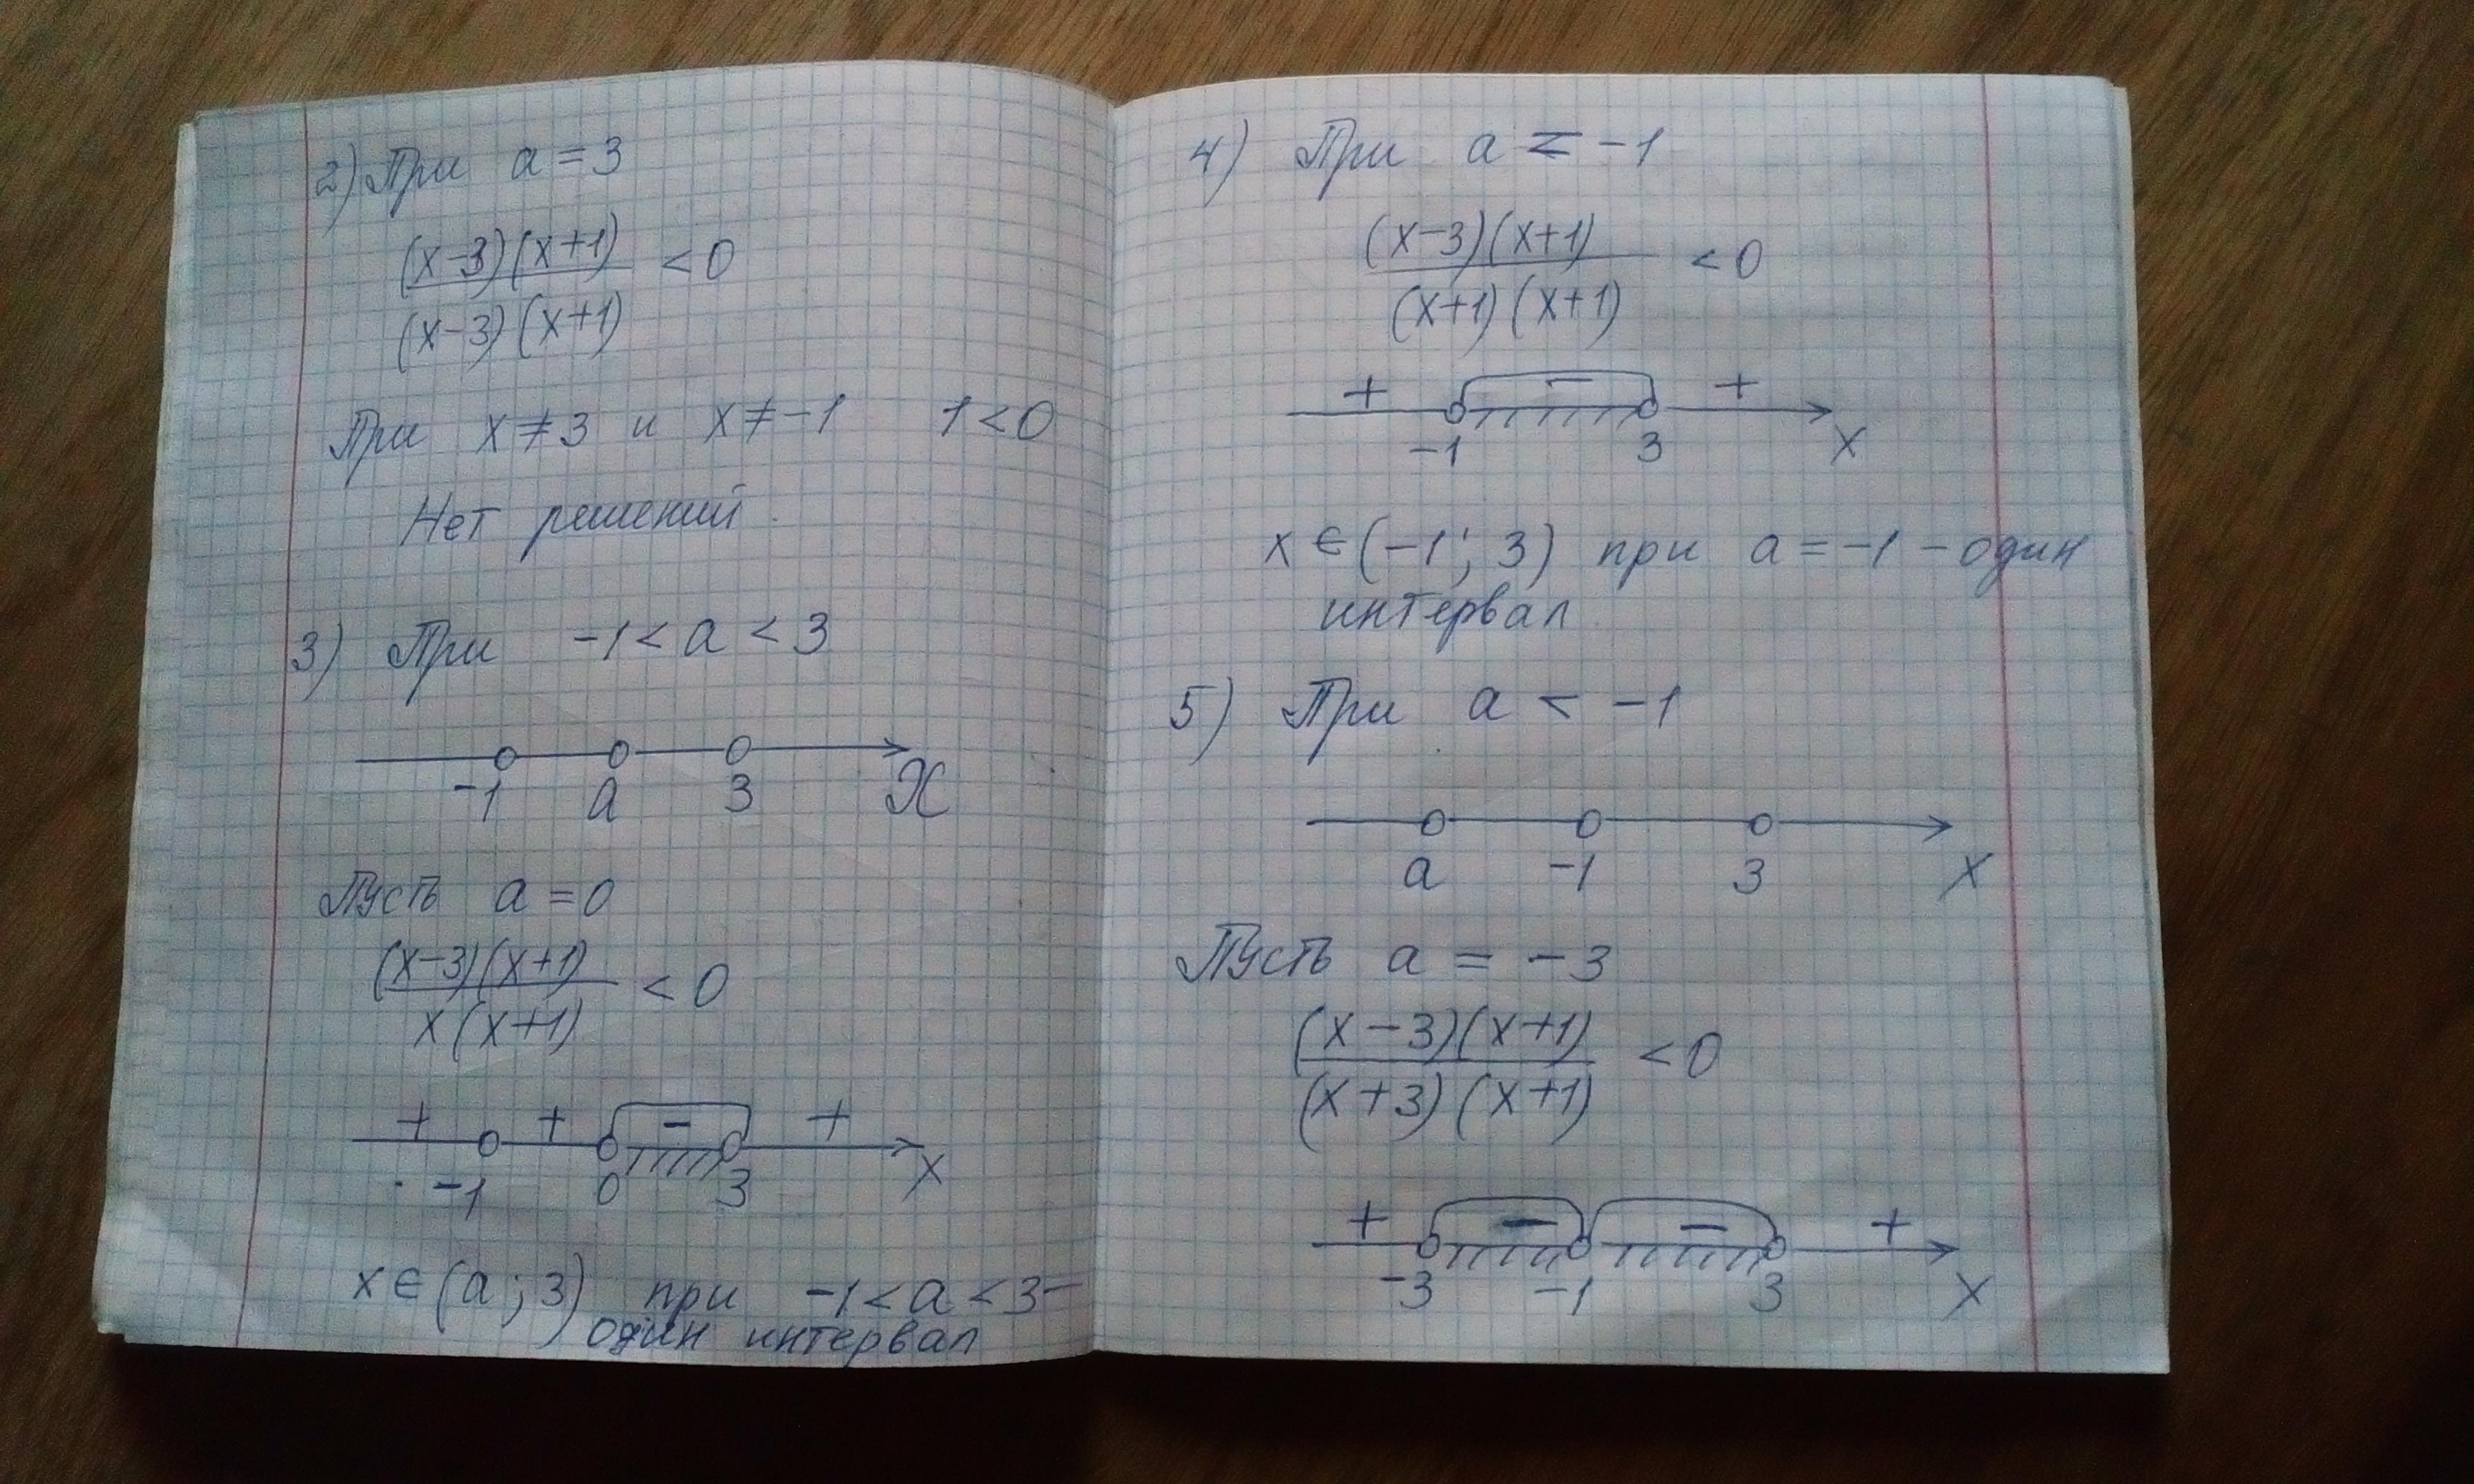 2) При a = 3
(x-3)(x+1)
< 0
(x-3)(x+1)
При x ≠ 3 и x ≠ -1 1 < 0
Нет решений.
3) При -1 < a < 3
-1 a 3 X
Пусть a = 0
(x-3)(x+1)
< 0
x(x+1)
+ + - +
-1 0 3 X
x ∈ (a; 3) при -1 < a < 3 -
один интервал
4) При a = -1
(x-3)(x+1)
< 0
(x+1)(x+1)
+ - +
-1 3 X
x ∈ (-1; 3) при a = -1 - один
интервал
5) При a < -1
a -1 3 X
Пусть a = -3
(x-3)(x+1)
< 0
(x+3)(x+1)
+ - - +
-3 -1 3 X